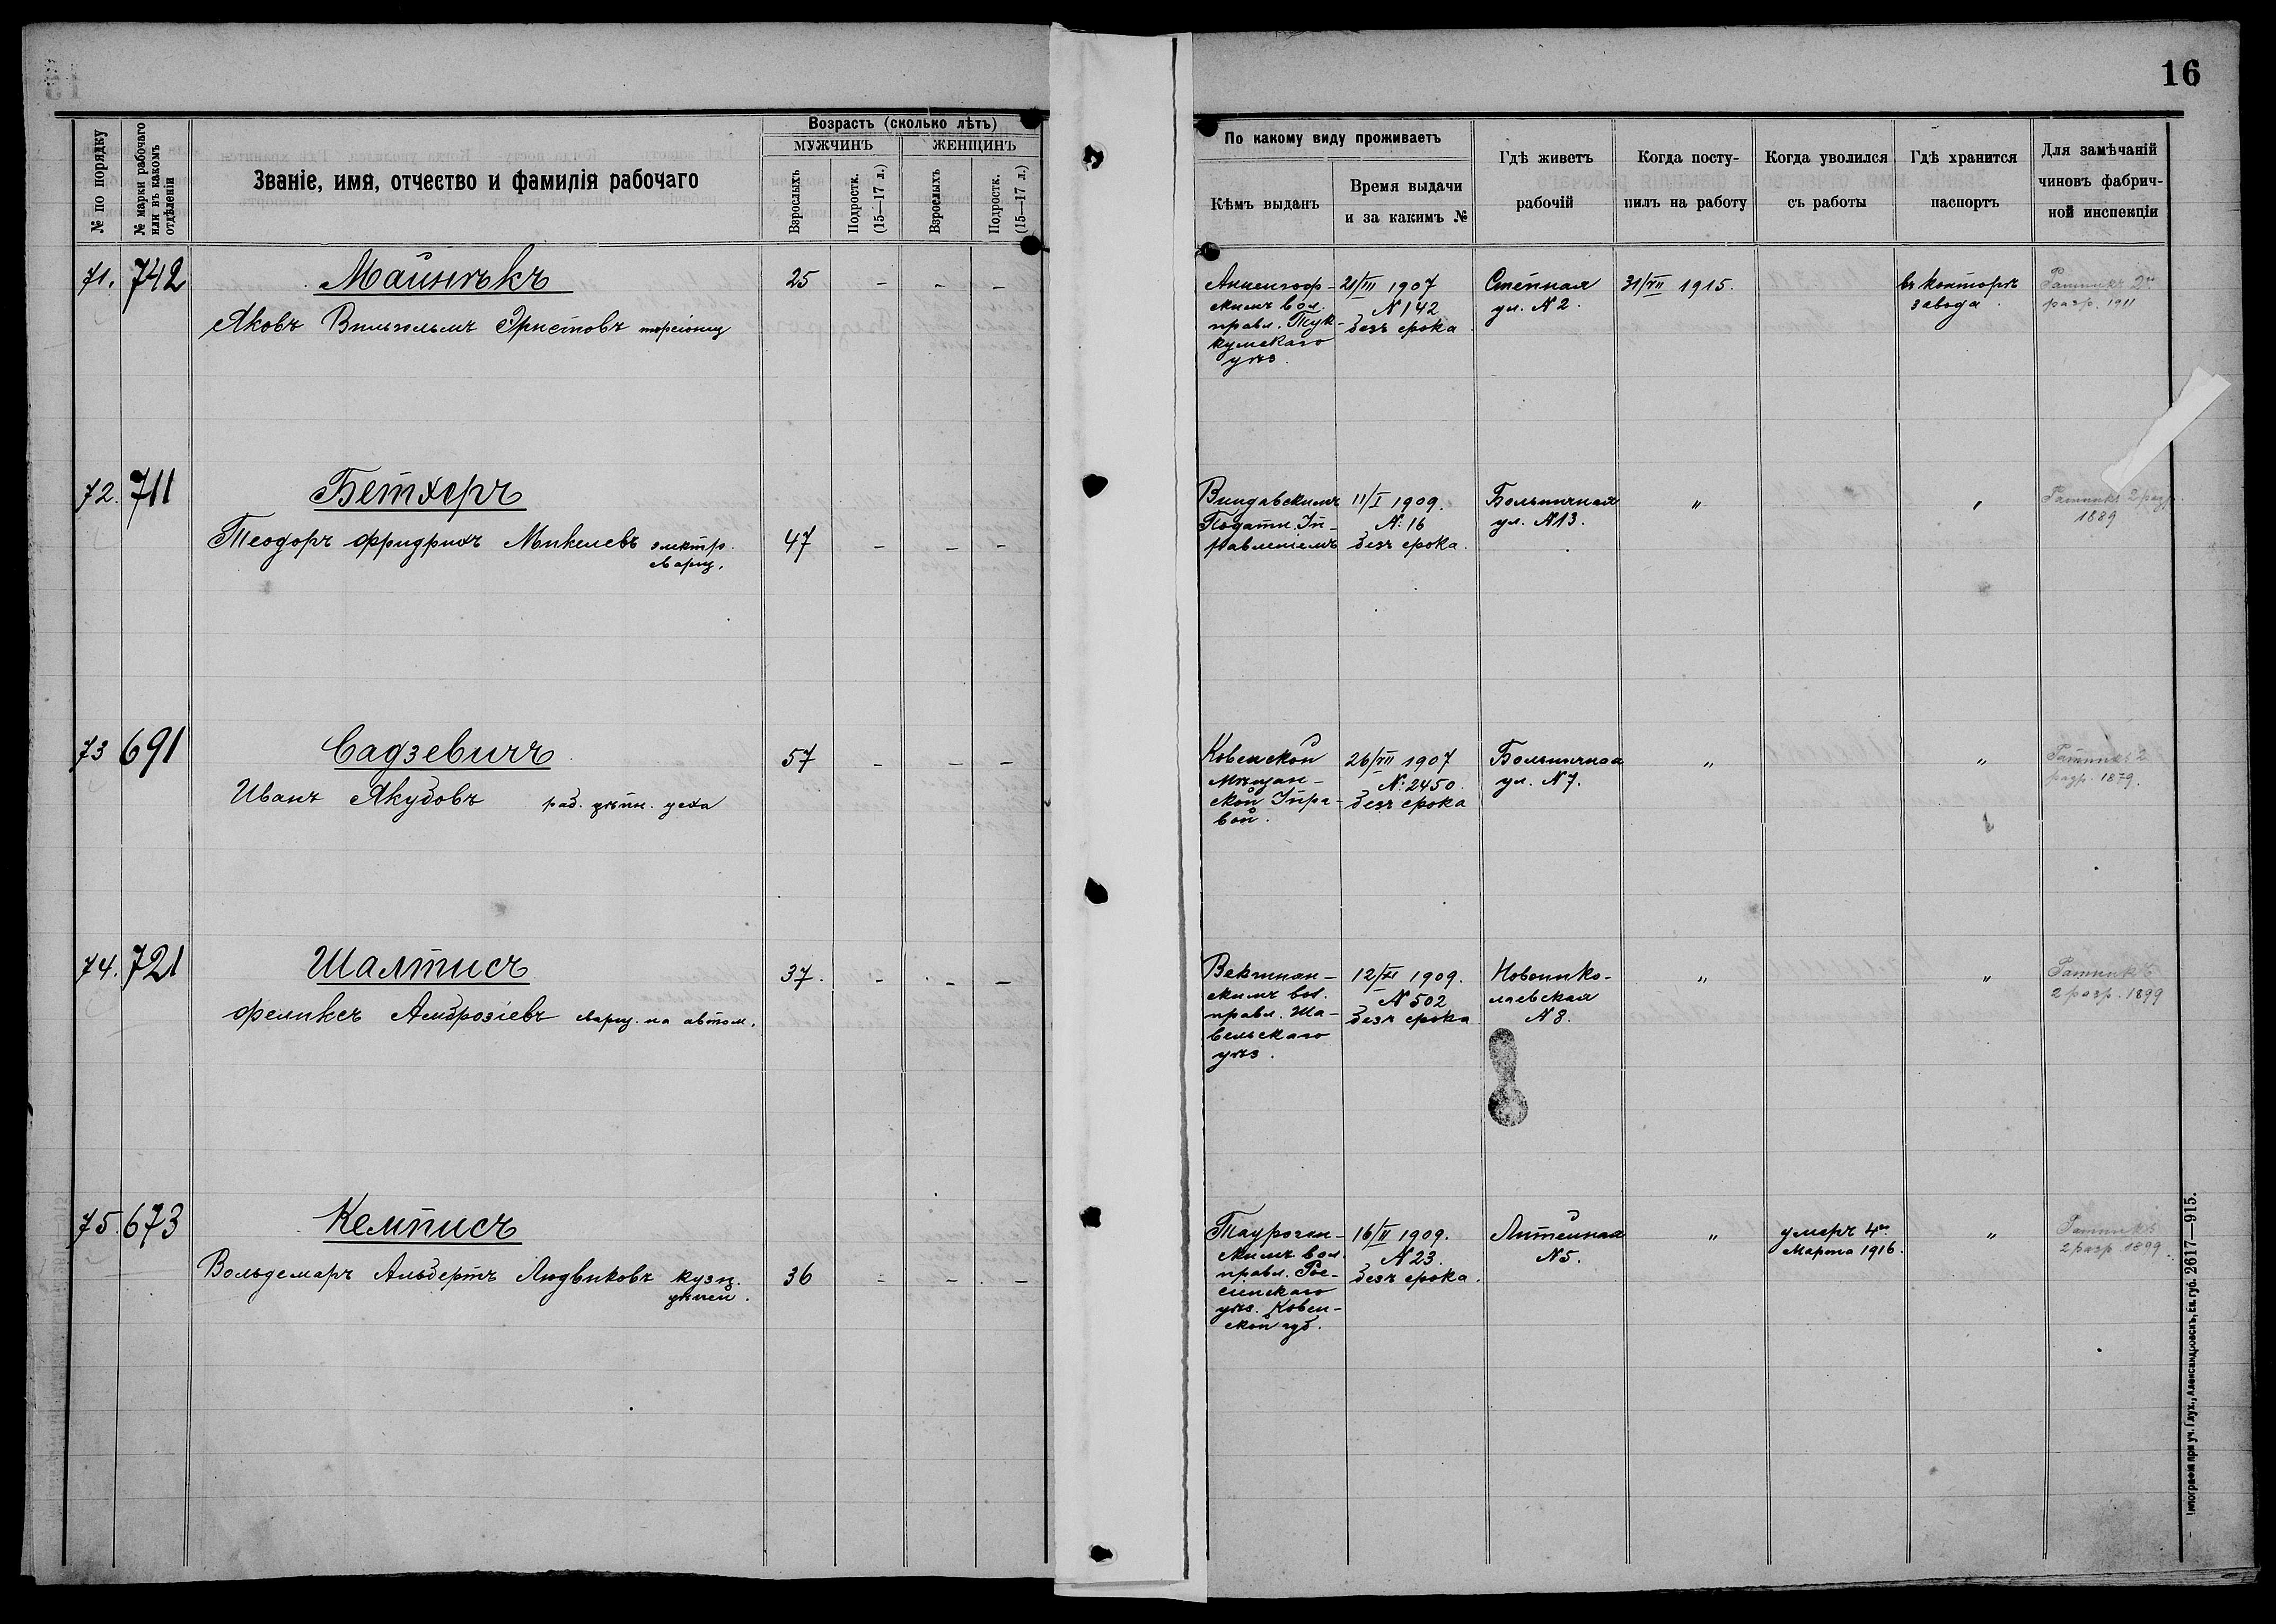 16
№ по порядку
№ марки рабочаго или въ какомъ отдѣленіи
Званіе, имя, отчество и фамилія рабочаго
Возрастъ (сколько лѣтъ)
МУЖЧИНЪ
ЖЕНЩИНЪ
Взрослыхъ
Подростк. (15—17 л.)
Взрослыхъ
Подростк. (15—17 л.)
По какому виду проживаетъ
Кѣмъ выданъ
Время выдачи
и за какимъ №
Гдѣ живетъ
рабочій
Когда посту-
пилъ на работу
Когда уволился
съ работы
Гдѣ хранится
паспортъ
Для замѣчаній
чиновъ фабрич-
ной инспекціи
71. 742 Майнѣкъ 25 - - -
Яковъ Вильгельмъ Эрнстовъ
скимъ вол.
правл. Тук-
кумскаго
уѣз.
21/III 1907
N 142
безъ срока
Степная
ул. N 2.
31/VII 1915.
въ конторѣ
завода.
Ратникъ 2го
разр. 1911
72. 711 Бетхеръ
Теодоръ Фридрихъ Микелевъ электр.
сварщ.
47 - - -
Виндавскимъ
Податн. Уп-
равленіемъ
11/I 1909.
N: 16
безъ срока.
Больничная
ул. N 13.
"
"
Ратникъ 2 разр.
1889
73 691 Садзевичъ 57 - - -
Иванъ Якубовъ раб. цѣпн. цеха
Ковенской
Мѣщан-
ской Упра-
вой.
26/VII 1907
N: 2450.
безъ срока
Больничная
ул. N 7.
"
"
Ратникъ 2
разр. 1879.
74. 721 Шалтисъ 37. - - -
Феликсъ Амброзіевъ сварщ. на автом.
скимъ вол.
правл. Ша-
вельскаго
уѣз.
12/XI 1909.
N 502
безъ срока
Новонико-
лаевская
N 8.
"
"
Ратникъ
2 разр. 1899
75. 673 Кемписъ
Вольдемаръ Альбертъ Людвиковъ кузн.
цѣпей.
36 - - -
Таурогин-
скимъ вол.
правл. Рос-
сіенскаго
уѣз. Ковен-
ской губ.
16/II 1909.
N 23.
безъ срока.
Литейная
N 5.
"
умеръ 4го
Марта 1916.
"
Ратникъ
2 разр 1899.
Типографія при уч. Глух., Александровскъ, Ек. губ. 2617—915.